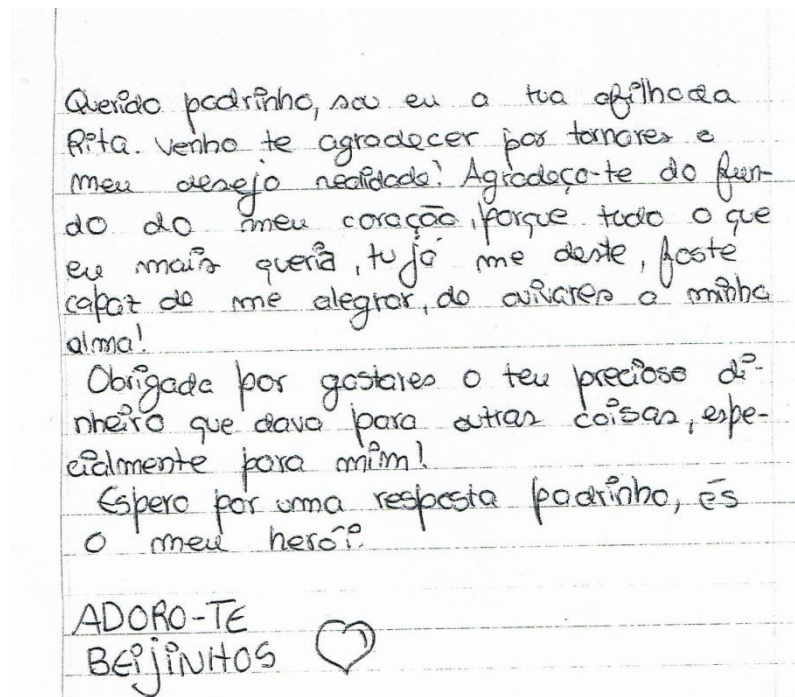 Querido padrinho, sou eu a tua afilhada
Rita. Venho te agradecer por tornares o
meu desejo realidade! Agradeço-te do fun-
do do meu coração, porque tudo o que
eu mais queria, tu já me deste, foste
capaz de me alegrar, de avivares a minha
alma!
Obrigada por gastares o teu precioso di-
nheiro que dava para outras coisas, espe-
cialmente para mim!
Espero por uma resposta padrinho, és
o meu herói!
ADORO-TE
BEijiNHOS